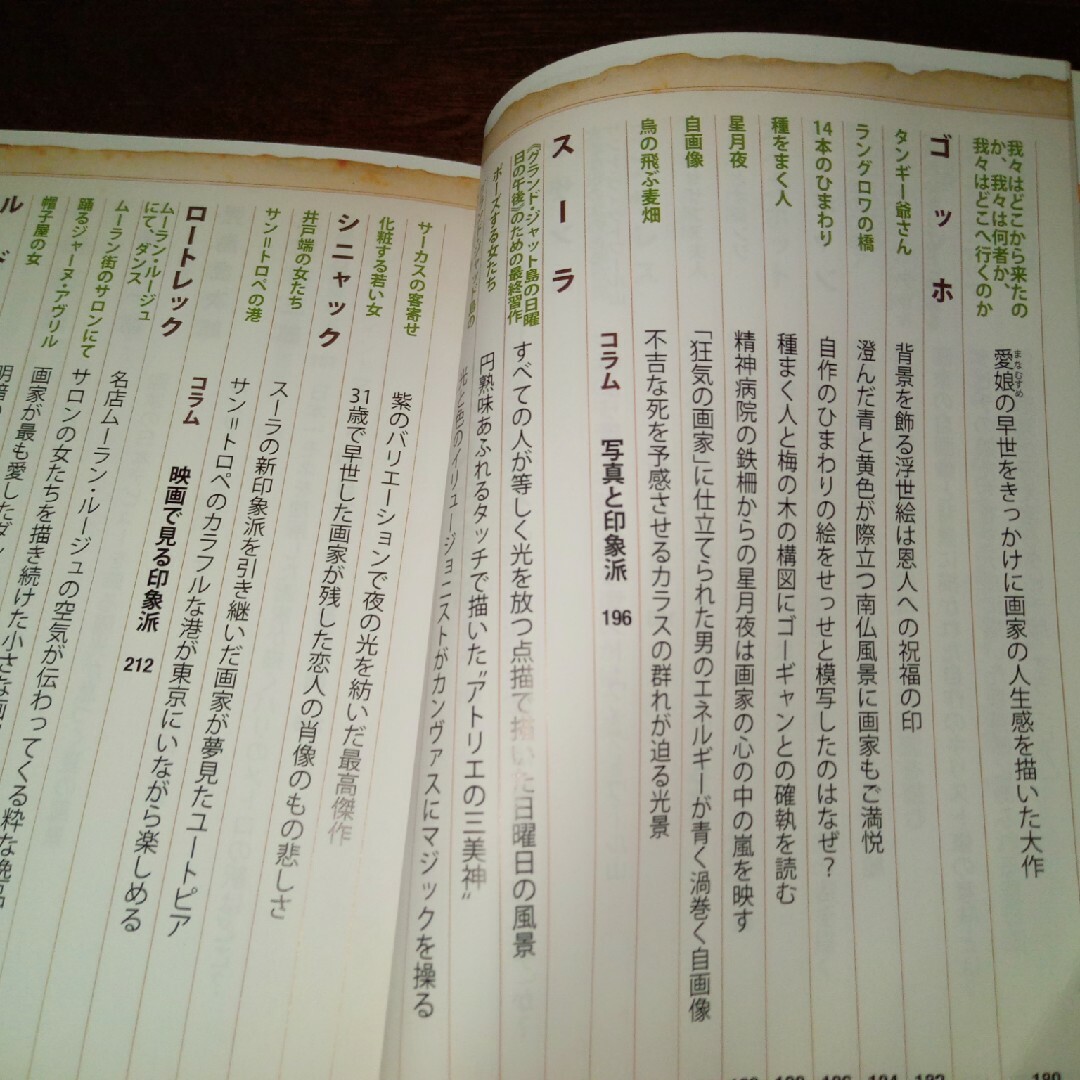 我々はどこから来たの
か、我々は何者か、
我々はどこへ行くのか
愛娘の早世をきっかけに画家の人生感を描いた大作
まなむすめ
ゴッホ
タンギー爺さん
背景を飾る浮世絵は恩人への祝福の印
ラングロワの橋
澄んだ青と黄色が際立つ南仏風景に画家もご満悦
14本のひまわり
自作のひまわりの絵をせっせと模写したのはなぜ？
種をまく人
種まく人と梅の木の構図にゴーギャンとの確執を読む
星月夜
精神病院の鉄柵からの星月夜は画家の心の中の嵐を映す
自画像
「狂気の画家」に仕立てられた男のエネルギーが青く渦巻く自画像
烏の飛ぶ麦畑
不吉な死を予感させるカラスの群れが迫る光景
コラム 写真と印象派 196
スーラ
《グランド・ジャット島の日曜
日の午後》のための最終習作
すべての人が等しく光を放つ点描で描いた日曜日の風景
ポーズする女たち
円熟味あふれるタッチで描いた"アトリエの三美神"
光と色のイリュージョニストがカンヴァスにマジックを操る
サーカスの客寄せ
紫のバリエーションで夜の光を紡いだ最高傑作
化粧する若い女
31歳で早世した画家が残した恋人の肖像のもの悲しさ
シニャック
井戸端の女たち
スーラの新印象派を引き継いだ画家が夢見たユートピア
サン＝トロペの港
サン＝トロペのカラフルな港が東京にいながら楽しめる
コラム 映画で見る印象派 212
ロートレック
ムーラン・ルージュ
にて、ダンス
名店ムーラン・ルージュの空気が伝わってくる粋な
ムーラン街のサロンにて
サロンの女たちを描き続けた小さな
踊るジャーヌ・アヴリル
画家が最も愛した
帽子屋の女